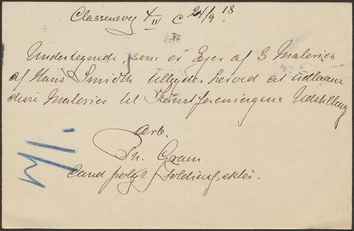 Classensvej 4 III C 24/9 18
Undertegnede, som er Ejer af 3 Malerier
af Hans Smidth tilbyder herved at udlaane
disse Malerier til Kunstforeningens Udstilling
Ærb.
Gram
Cand polyt